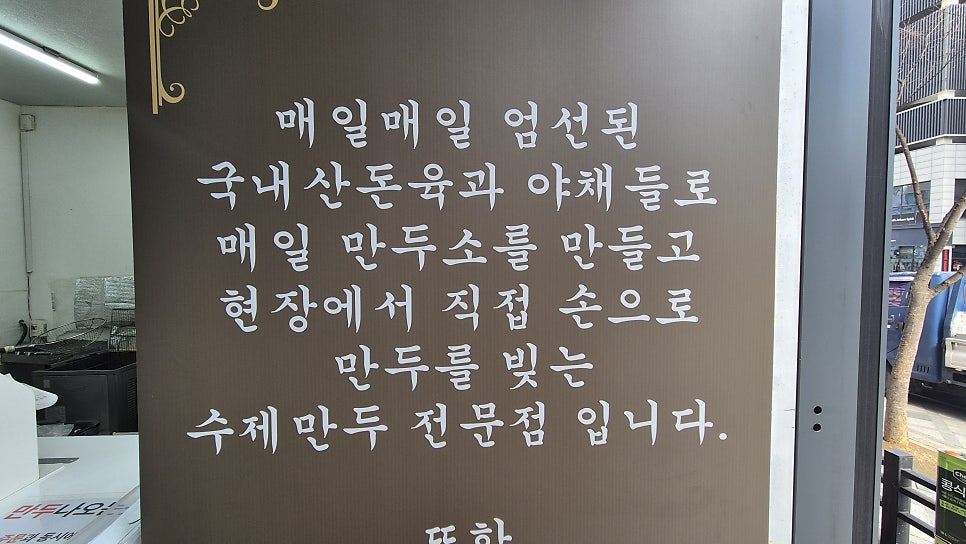 매일매일 엄선된
국내산돈육과 야채들로
매일 만두소를 만들고
현장에서 직접 손으로
만두를 빚는
수제만두 전문점 입니다.
또한
만두나오는
콩식